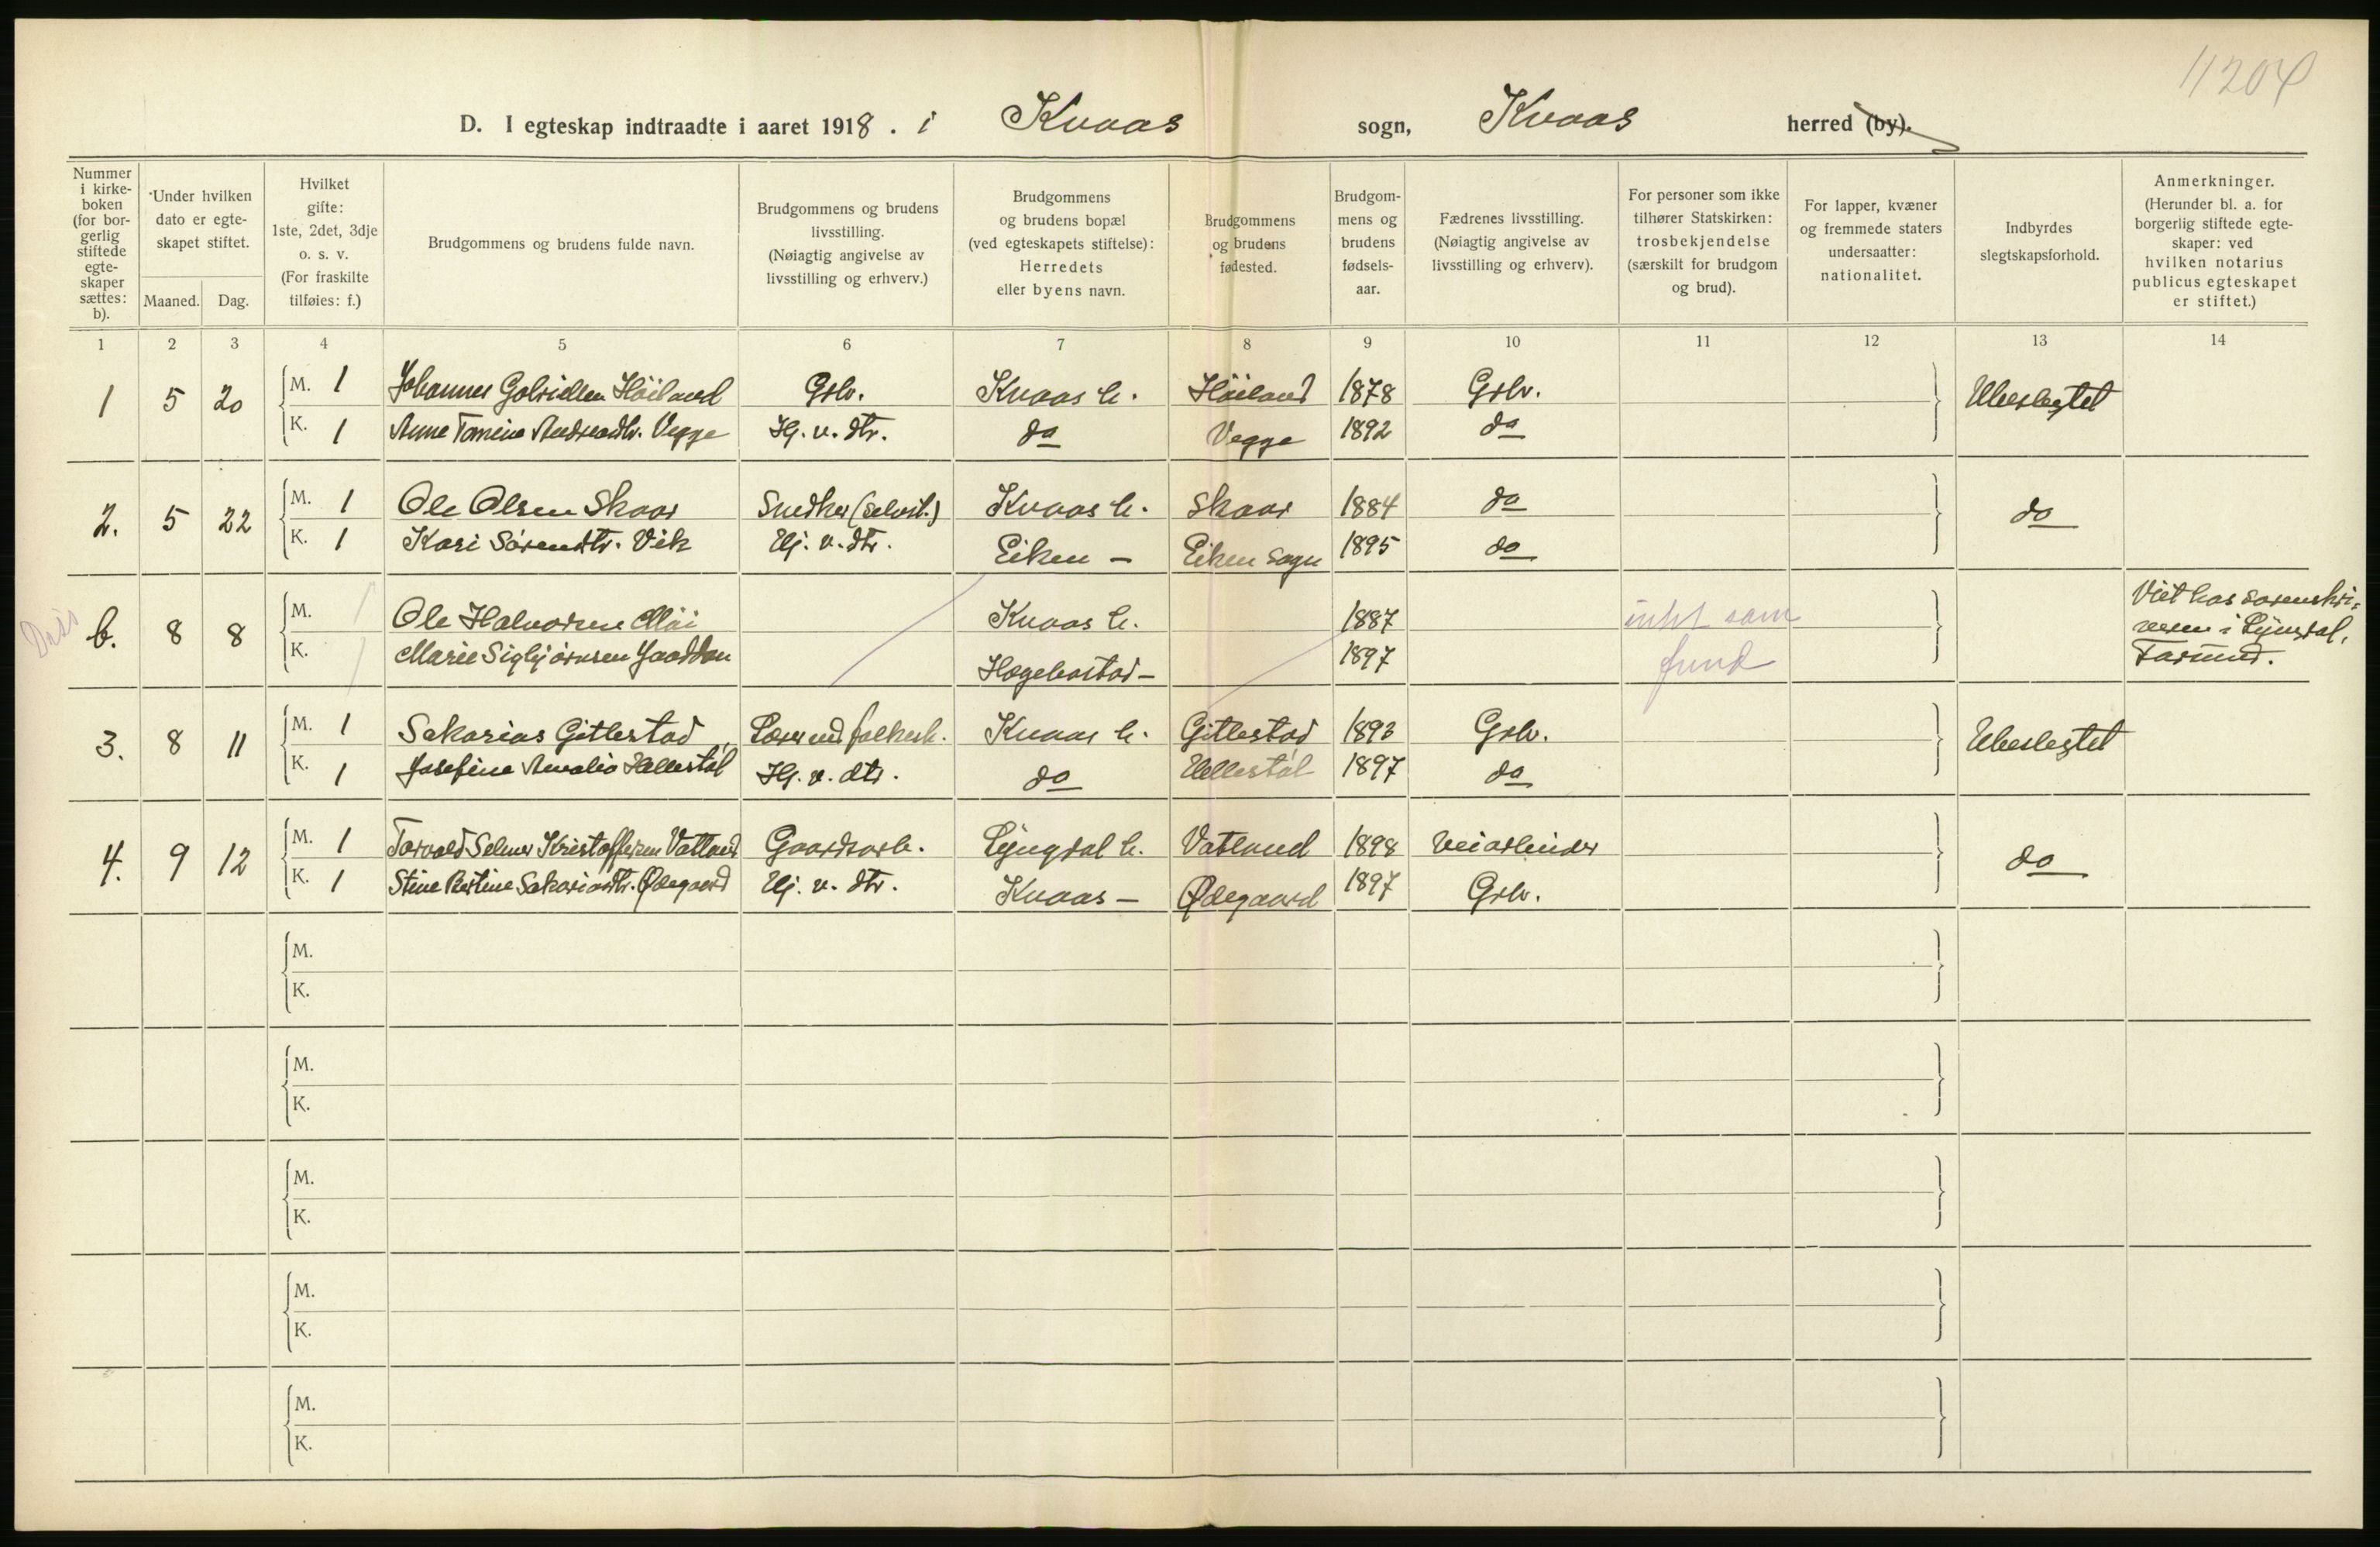 11204
D. I egteskap indtraadte i aaret 1918. i Kvaas sogn, Kvaas herred (by).
Nummer i kirkeboken (for borgerlig stiftede egteskaper sættes: b).
Under hvilken dato er egteskapet stiftet.
Maaned. Dag.
Hvilket gifte: 1ste, 2det, 3dje o. s. v. (For fraskilte tilføies: f.)
Brudgommens og brudens fulde navn.
Brudgommens og brudens livsstilling. (Nøiagtig angivelse av livsstilling og erhverv.)
Brudgommens og brudens bopæl (ved egteskapets stiftelse): Herredets eller byens navn.
Brudgommens og brudens fødested.
Brudgommens og brudens fødselsaar.
Fædrenes livsstilling. (Nøiagtig angivelse av livsstilling og erhverv).
For personer som ikke tilhører Statskirken: trosbekjendelse (særskilt for brudgom og brud).
For lapper, kvæner og fremmede staters undersaatter: nationalitet.
Indbyrdes slegtskapsforhold.
Anmerkninger. (Herunder bl. a. for borgerlig stiftede egteskaper: ved hvilken notarius publicus egteskapet er stiftet.)
1 2 3 4 5 6 7 8 9 10 11 12 13 14
1 5 20 M. 1 Johannes Gabrielsen Höiland Grbr. Kvaas h. Höiland 1878 Grbr. Ubeslegtet
K. 1 Anne Tomine Andreasdtr. Vegge Hj. v. dtr. do Vegge 1892 do
2. 5 22 M. 1 Ole Olsen Skaar Snedker (selvst.) Kvaas h. Skaar 1884 do do
K. 1 Kari Sörensdtr. Vik Hj. v. dtr. Eiken — Eiken sogn 1895 do
b. 8 8 M. 1 Ole Halvorsen Möi Kvaas h. 1887 intet sam
K. 1 Marie Sigbjörnsen Haaddan Hægebostad — 1897 fund
Viet hos sorenskri-
veren i Lyngdal,
Farsund.
3. 8 11 M. 1 Sakarias Gitlestad Lærer ved folkesk. Kvaas h. Gitlestad 1893 Grbr. Ubeslegtet
K. 1 Josefine Amalia Hellestöl Hj. v. dtr. do Hellestöl 1897 do
4. 9 12 M. 1 Torvald Selmer Kristoffersen Vatland Gaardsarb. Lyngdal h. Vatland 1898 Veiarbeider do
K. 1 Stine Bertine Sakariasdtr. Ødegaard Hj. v. dtr. Kvaas — Ødegaard 1897 Grbr.
M.
K.
M.
K.
M.
K.
M.
K.
M.
K.